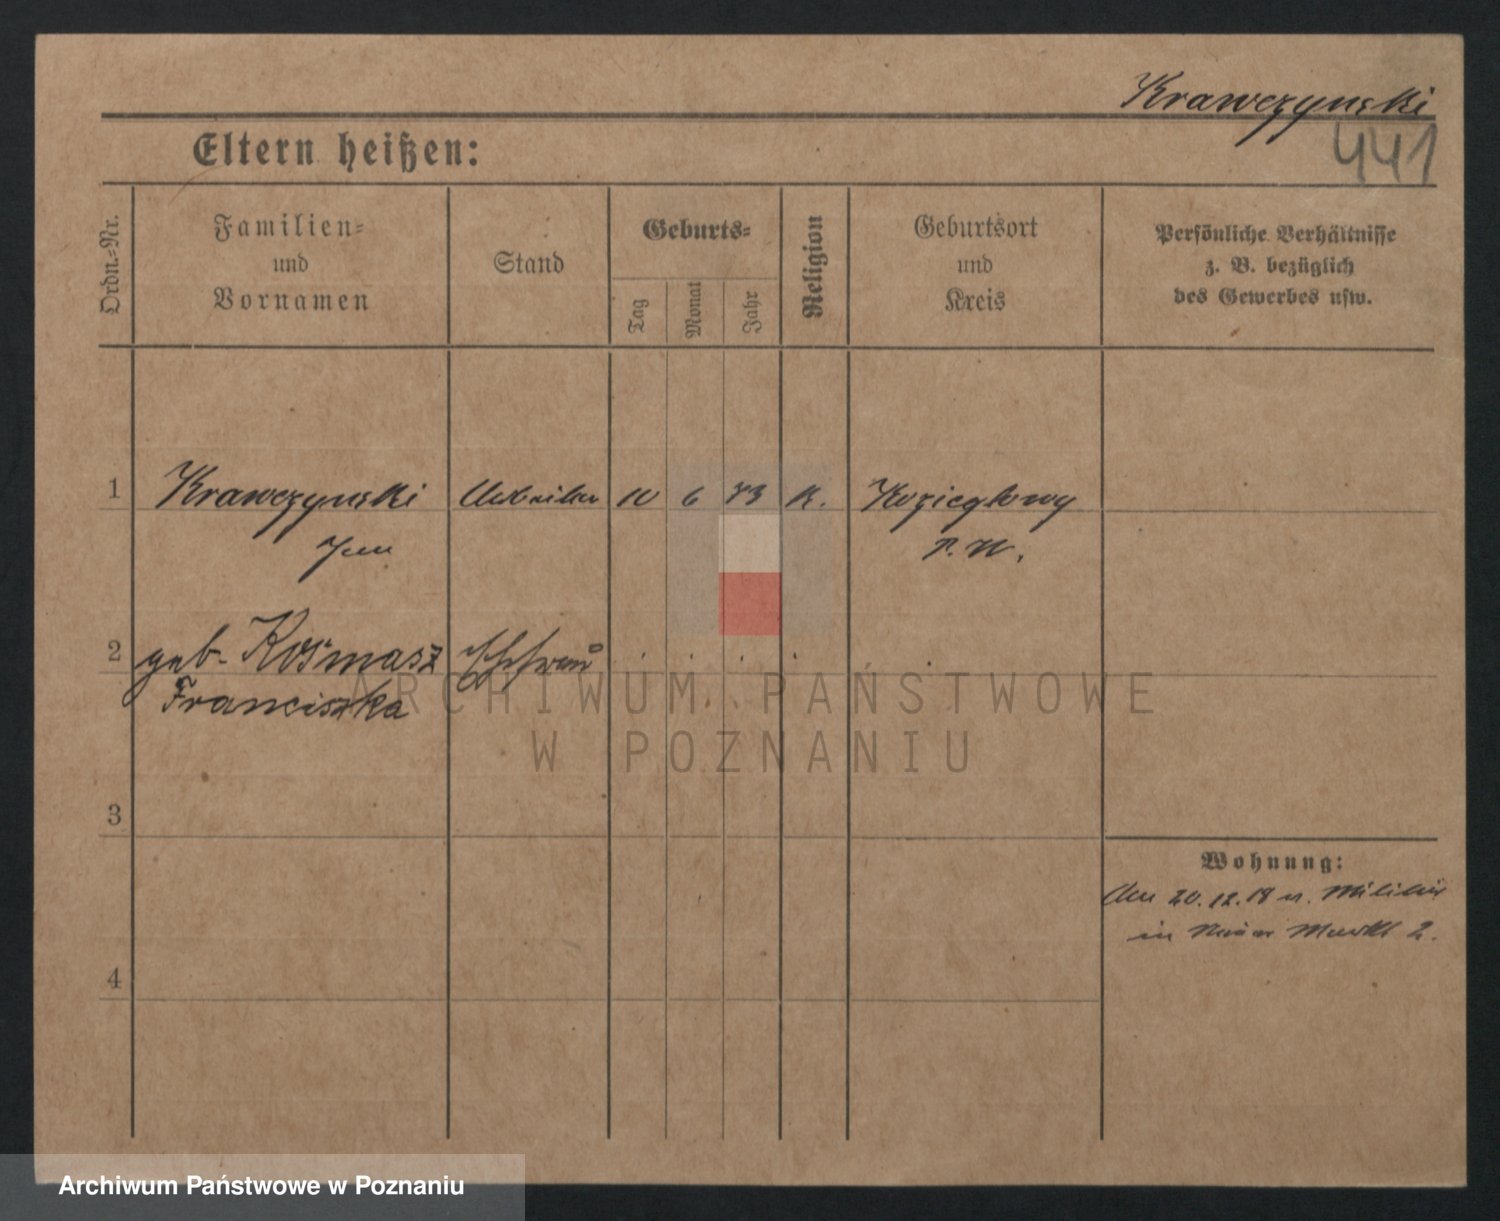 Krawczynski
441
Eltern heißen:
Ordn.-Nr.
Familien-
und
Vornamen
Stand
Geburts-
Tag
Monat
Jahr
Religion
Geburtsort
und
Kreis
Persönliche Verhältnisse
z. B. bezüglich
des Gewerbes usw.
1 Krawczynski Arbeiter 10 6 83 K. Kozieglowy
P. W.
2 geb. Kośmasz Ehefrau
Franciszka
ARCHIWUM PAŃSTWOWE
W POZNANIU
3
Wohnung:
20.12.18 v. Militär
in Neuer Markt 2.
4
Archiwum Państwowe w Poznaniu